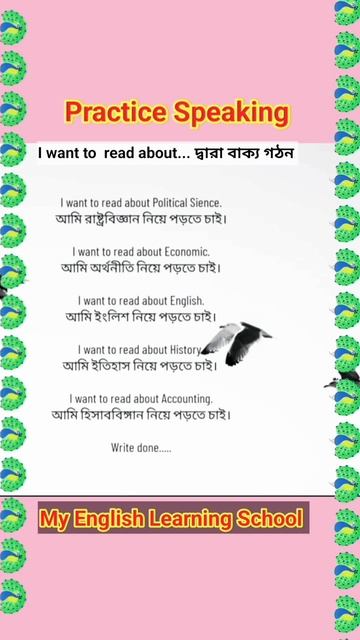 Practice Speaking
I want to read about... দ্বারা বাক্য গঠন
I want to read about Political Sience.
আমি রাষ্ট্রবিজ্ঞান নিয়ে পড়তে চাই।
I want to read about Economic.
আমি অর্থনীতি নিয়ে পড়তে চাই।
I want to read about English.
আমি ইংলিশ নিয়ে পড়তে চাই।
I want to read about History.
আমি ইতিহাস নিয়ে পড়তে চাই।
I want to read about Accounting.
আমি হিসাববিঙ্গান নিয়ে পড়তে চাই।
Write done.....
My English Learning School